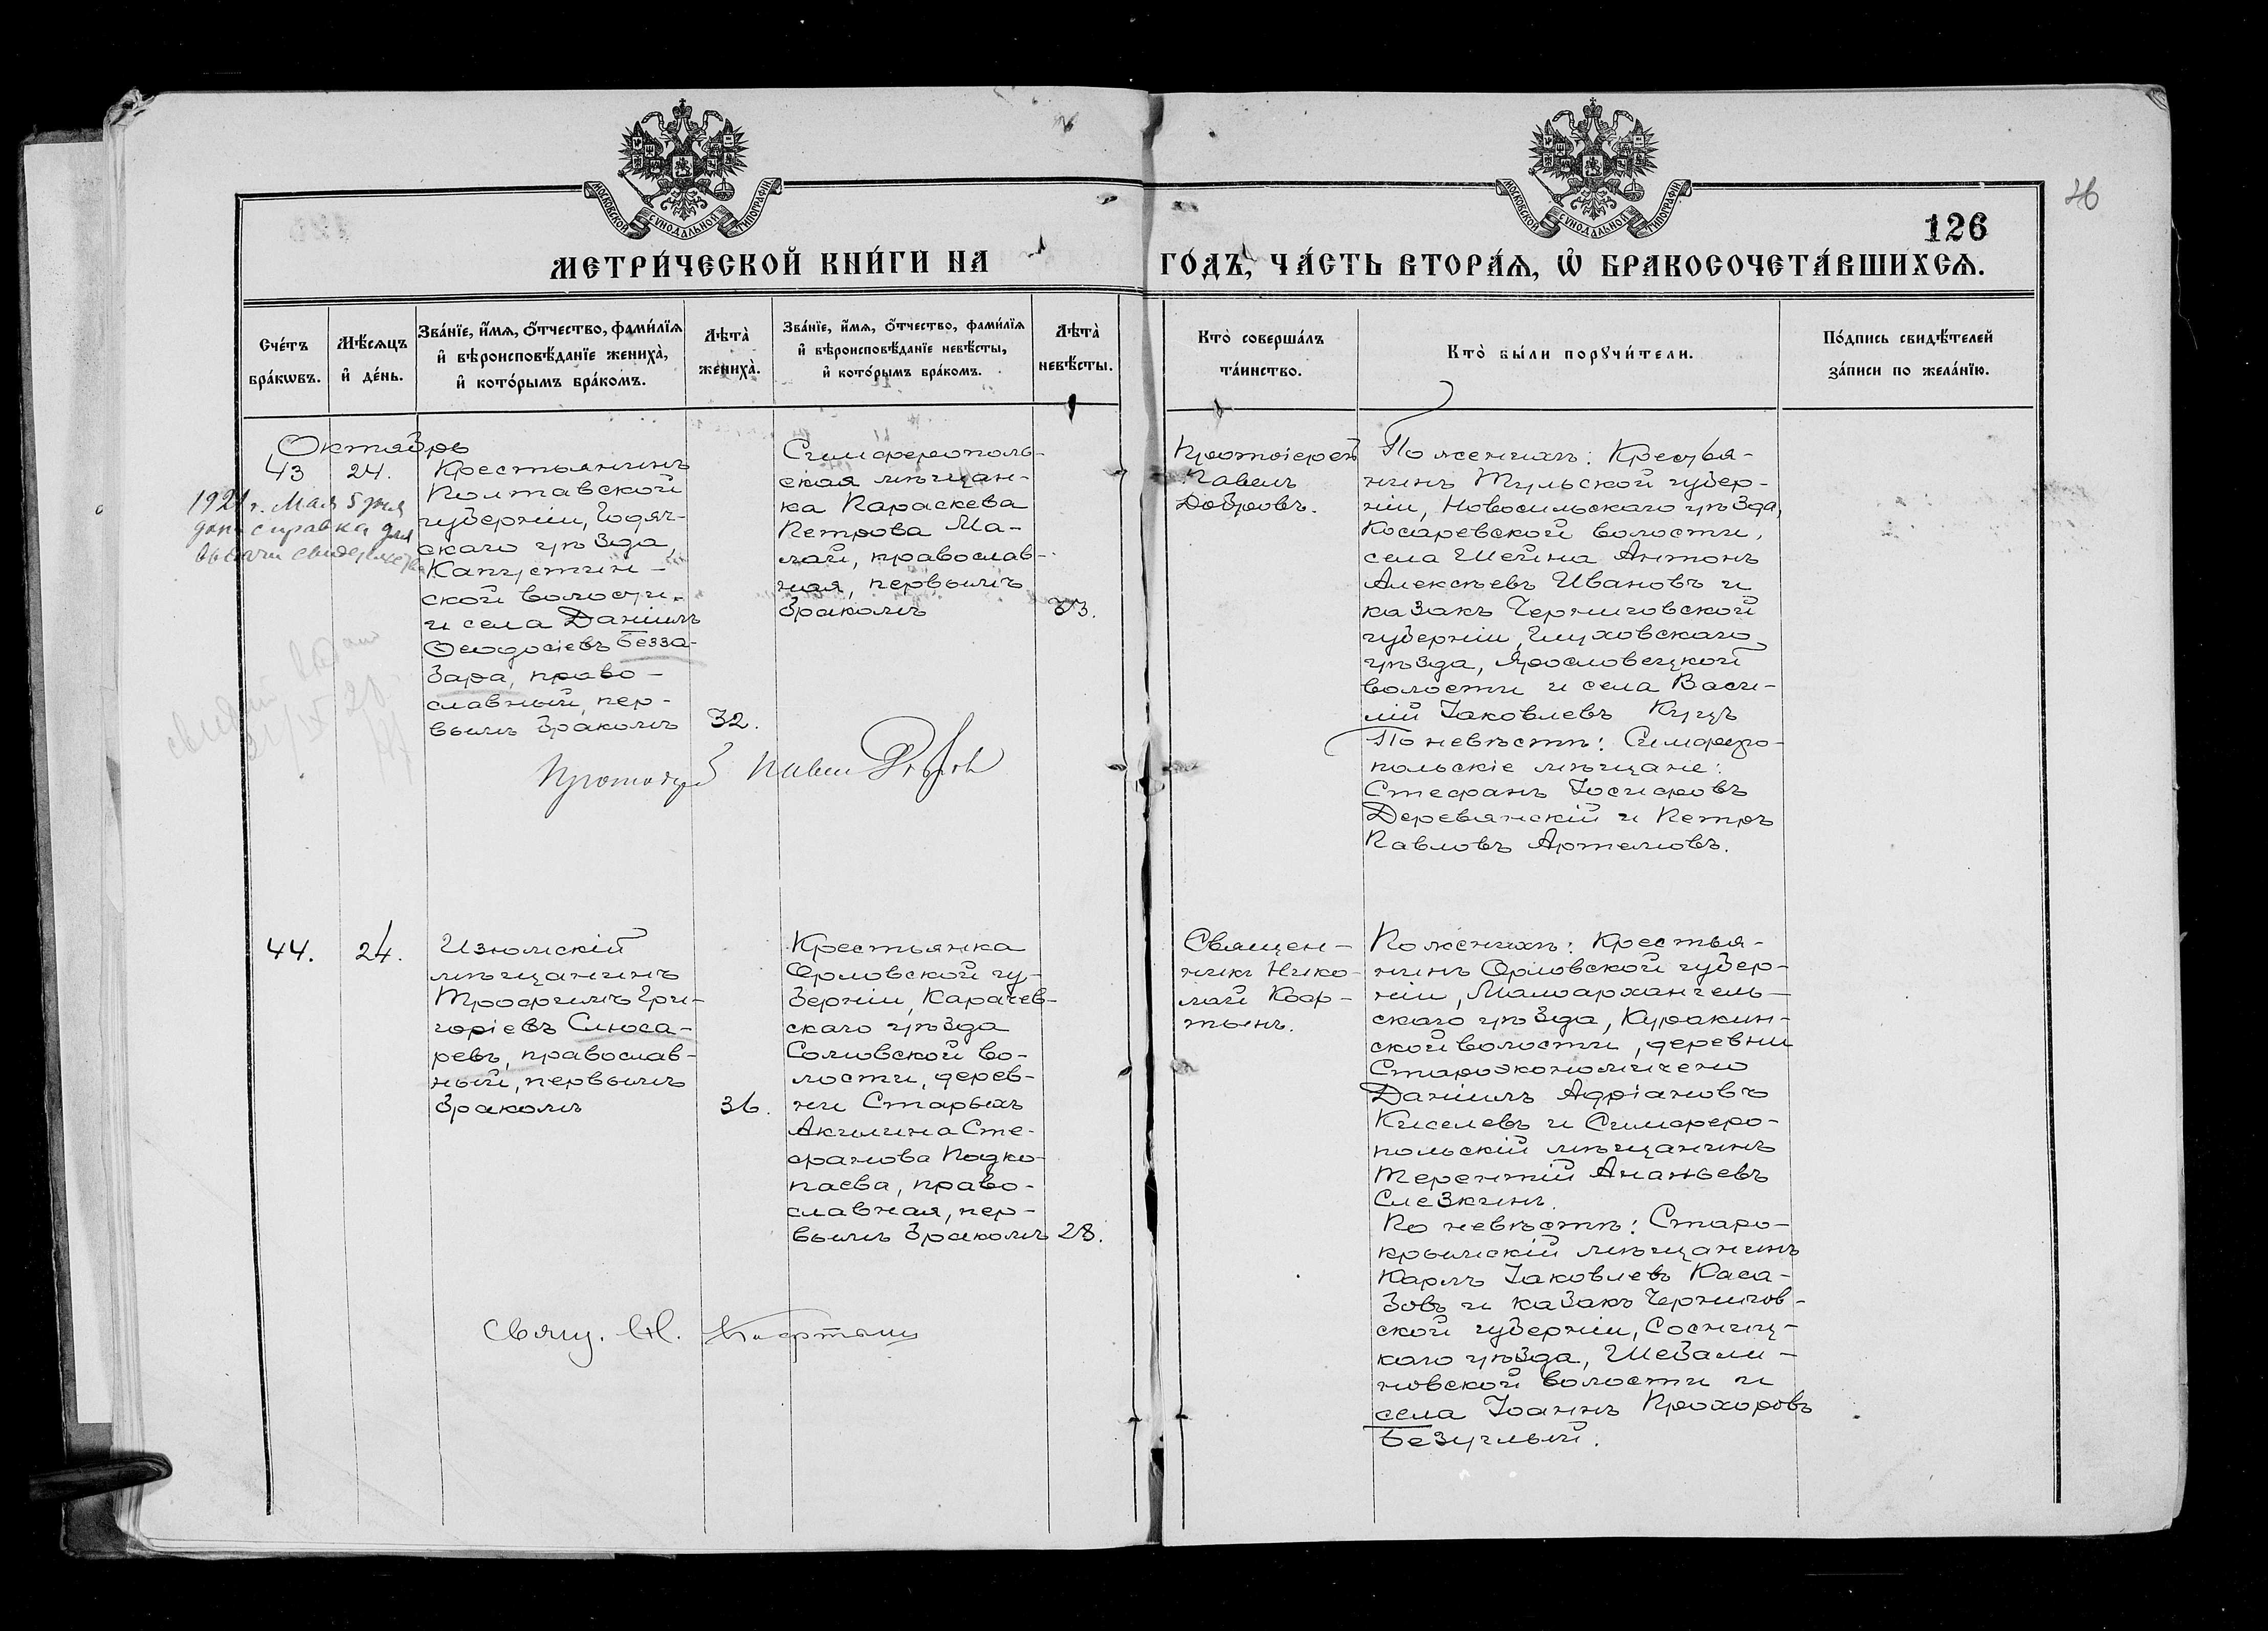 МОСКОВСКОЙ СУНОДАЛЬНОЙ ТИПОГРАФІИ
МОСКОВСКОЙ СУНОДАЛЬНОЙ ТИПОГРАФІИ
126
МЕТРИ́ЧЕСКОЙ КНИ́ГИ НА ГО́ДЪ, ЧА́СТЬ ВТОРА́Ѧ, Ѽ БРАКОСОЧЕТА́ВШИХСѦ.
Сче́тъ
бра́кѡвъ.
Мѣ́сѧцъ
и҆ де́нь.
Зва́нїе, и҆́мѧ, ѻ҆́тчество, фами́лїѧ
и҆ вѣроисповѣ́данїе жениха̀,
и҆ кото́рымъ бра́комъ.
Лѣта̀
жениха̀.
Зва́нїе, и҆́мѧ, ѻ҆́тчество, фами́лїѧ
и҆ вѣроисповѣ́данїе невѣ́сты,
и҆ кото́рымъ бра́комъ.
Лѣта̀
невѣ́сты.
Кто̀ соверша́лъ
та́инство.
Кто̀ бы́ли порꙋчи́тели.
По́дпись свидѣ́телей
за́писи по жела́нїю.
Октябрь
43
24.
1921 г. Мая 5 дня
дана справка для
выдачи
Крестьянинъ
Полтавской
губерніи, Гадяч-
скаго уѣзда,
Капустин-
ской волости
и села Даніилъ
Ѳеодосіевъ Безза-
бара, право-
славный, пер-
вымъ бракомъ
32.
Симферополь-
ская мѣщан-
ка Параскева
Петрова Ма-
лай, православ-
ная, первымъ
бракомъ
33.
Протоіерей
Павелъ
Добровъ.
По женихѣ: Крестья-
нинъ Тульской губер-
ніи, Новосильскаго уѣзда,
Косаревской волости,
села Шеина Антонъ
Алексѣевъ Ивановъ и
казакъ Черниговской
губерніи, Глуховскаго
уѣзда, Ярославецкой
волости и села Васи-
лій Іаковлевъ Куцъ
По невѣстѣ: Симферо-
польскіе мѣщане:
Стефанъ Іосифовъ
Деревянскій и Петръ
Павловъ Артемовъ.
Протоіерей Павелъ Добровъ
44.
24.
Изюмскій
мѣщанинъ
Трофимъ Гри-
горіевъ Слюса-
ревъ, православ-
ный, первымъ
бракомъ
36.
Крестьянка
Орловской гу-
берніи, Карачев-
скаго уѣзда
Сомовской во-
лости, дерев-
ни Старыхъ
Акилина Сте-
фанова Подко-
паева, право-
славная, пер-
вымъ бракомъ
28.
Священ-
никъ Нико-
лай Коор-
тынъ.
По женихѣ: Крестья-
нинъ Орловской губер-
ніи, Малоархангель-
скаго уѣзда, Куракин-
ской волости, деревни
Даніилъ Адріановъ
Киселевъ и Симферо-
польскій мѣщанинъ
Терентій Ананьевъ
Слезкинъ.
По невѣстѣ: Старо-
крымскій мѣщанинъ
Карлъ Іаковлевъ Каса-
бовъ и казакъ Чернигов-
ской губерніи, Сосниц-
каго уѣзда, Шебали-
новской волости и
села Іоаннъ Прохоровъ
Безуглый.
Свящ. Н.